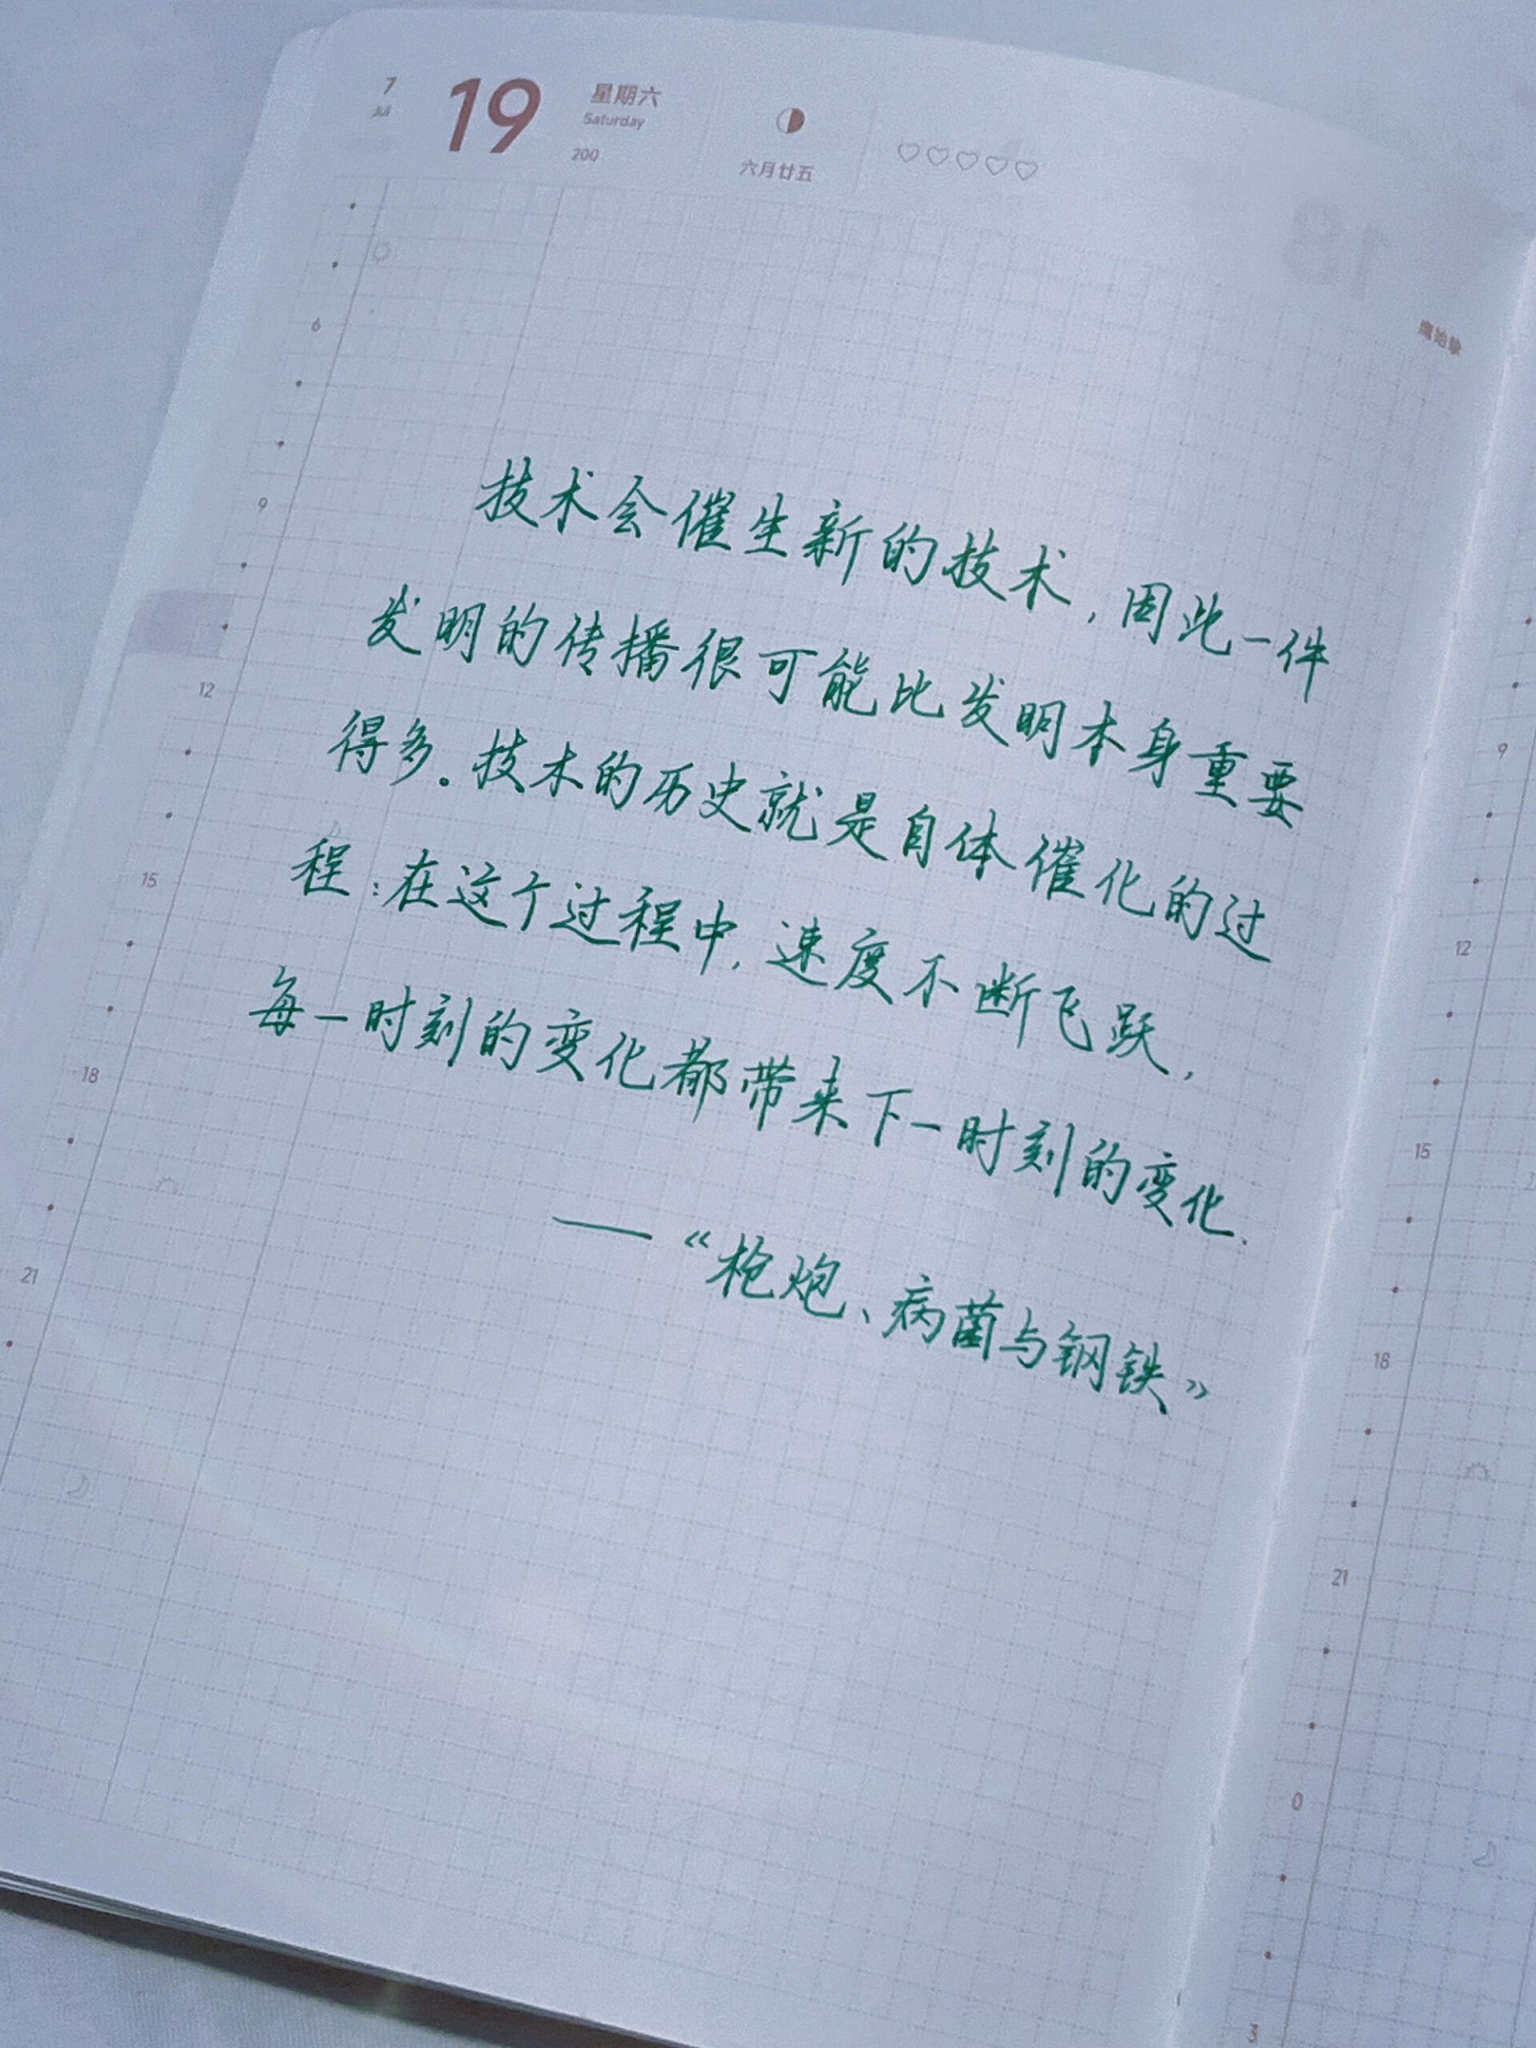 7
Jul
19
星期六
Saturday
200
六月廿五
技术会催生新的技术，因此一件
发明的传播很可能比发明本身重要
得多。技术的历史就是自体催化的过
程：在这个过程中，速度不断飞跃，
每一时刻的变化都带来下一时刻的变化.
——《枪炮、病菌与钢铁》
6
9
12
15
18
21
9
12
15
18
21
0
3